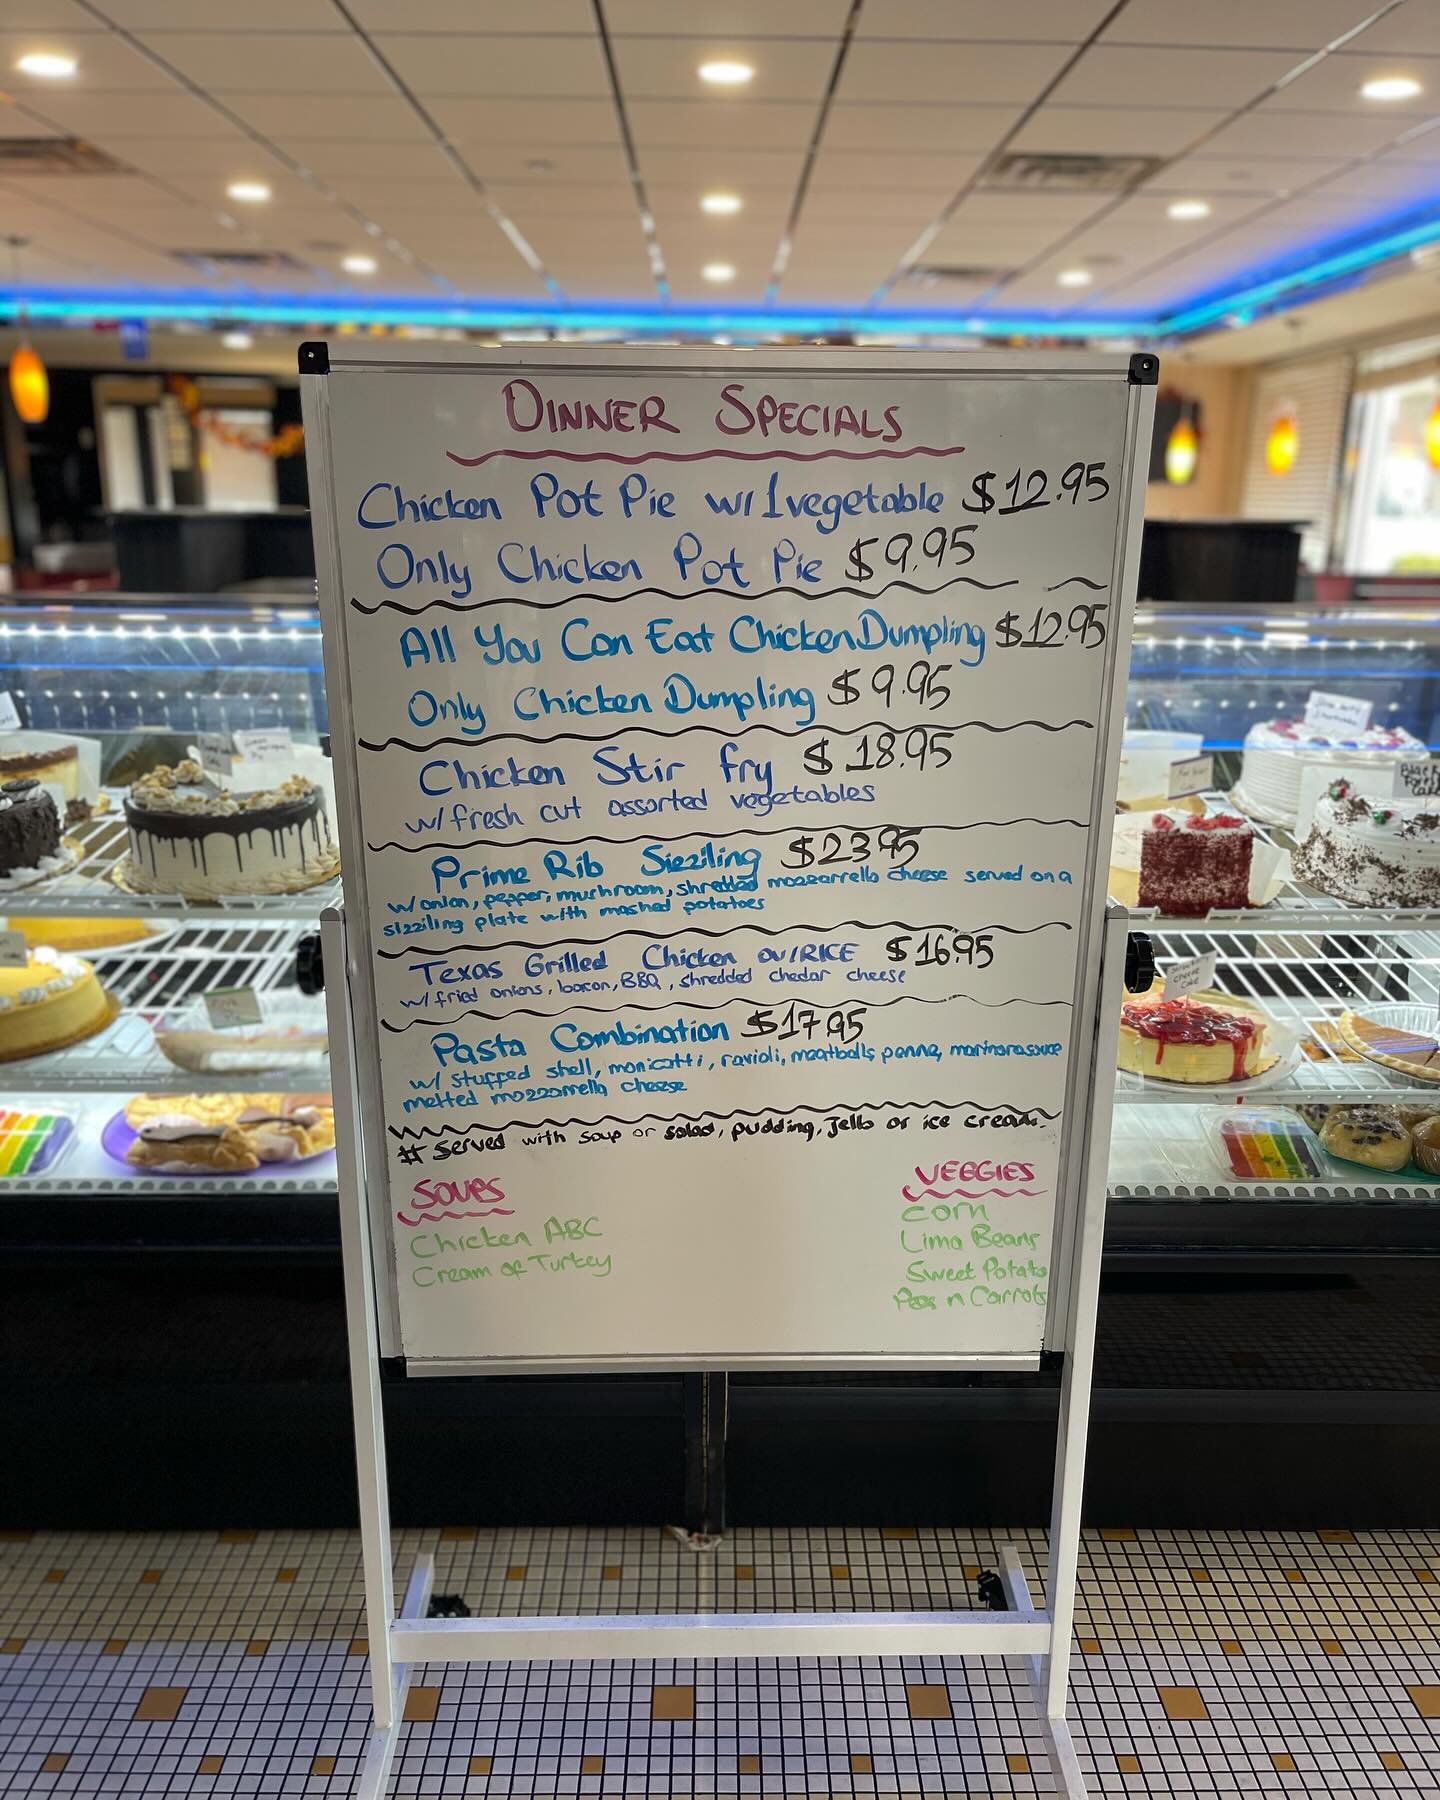 DINNER SPECIALS
Chicken Pot Pie w/ 1 vegetable $12.95
Only Chicken Pot Pie $9.95
All You Can Eat Chicken Dumpling $12.95
Only Chicken Dumpling $9.95
Chicken Stir fry $18.95
w/ fresh cut assorted vegetables
Prime Rib Sieziling $23.95
w/ onion, pepper, mushroom, shredded mozzarrella cheese served on a
sizziling plate with mashed potatoes
Texas Grilled Chicken ov/RICE $16.95
w/ fried onions, bacon, BBQ, shredded chedar cheese
Pasta Combination $17.95
w/ stuffed shell, manicotti, ravioli, meatballs, penne, marinara sauce
melted mozzarella cheese
# Served with soup or salad, pudding, Jello or ice cream.
SOUPS
Chicken ABC
Cream of Turkey
VEGGIES
Corn
Lima Beans
Sweet Potato
Peas n Carrots